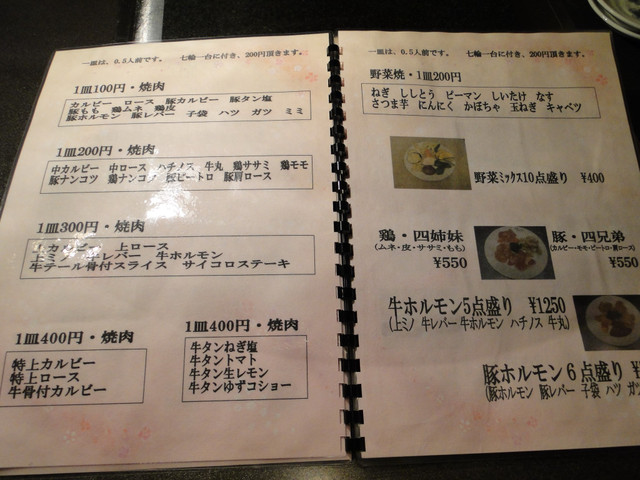 一皿は、0.5人前です。 七輪一台に付き、200円頂きます。
1皿100円・焼肉
カルビー ロース 豚カルビー 豚タン塩
豚もも 鶏ムネ 鶏皮
豚ホルモン 豚レバー 子袋 ハツ ガツ ミミ
1皿200円・焼肉
中カルビー 中ロース ハチノス 牛丸 鶏ササミ 鶏モモ
豚ナンコツ 鶏ナンコツ 豚ピートロ 豚肩ロース
1皿300円・焼肉
上カルビー 上ロース
上ミノ 牛レバー 牛ホルモン
牛テール骨付スライス サイコロステーキ
1皿400円・焼肉
特上カルビー
特上ロース
牛骨付カルビー
1皿400円・焼肉
牛タンねぎ塩
牛タントマト
牛タン生レモン
牛タンゆずコショー
一皿は、0.5人前です。 七輪一台に付き、200円頂きます。
野菜焼・1皿200円
ねぎ ししとう ピーマン しいたけ なす
さつま芋 にんにく かぼちゃ 玉ねぎ キャベツ
野菜ミックス10点盛り ¥400
鶏・四姉妹
(ムネ・皮・ササミ・もも)
¥550
豚・四兄弟
(カルビー・モモ・ピートロ・肩ロース)
¥550
牛ホルモン5点盛り ¥1250
(上ミノ 牛レバー 牛ホルモン ハチノス 牛丸)
豚ホルモン6点盛り ¥
(豚ホルモン 豚レバー 子袋 ハツ ガツ